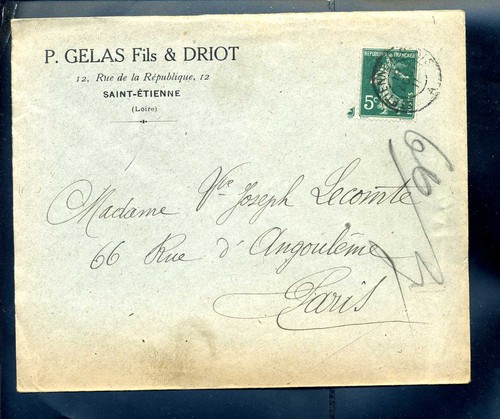 P. GELAS Fils & DRIOT
12, Rue de la République, 12
SAINT-ÉTIENNE
(Loire)
RÉPUBLIQUE FRANÇAISE
5c
ETIENNE
Madame Vve Joseph Lecomte
66 Rue d'Angoulême
Paris
66/